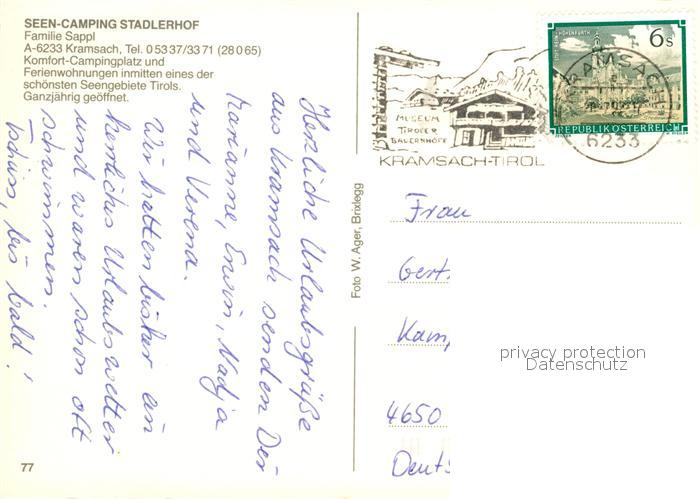 SEEN-CAMPING STADLERHOF
Familie Sappl
A-6233 Kramsach, Tel. 0 53 37/33 71 (280 65)
Komfort-Campingplatz und
Ferienwohnungen inmitten eines der
schönsten Seengebiete Tirols.
Ganzjährig geöffnet.
Herzliche Urlaubsgrüße
aus Kramsach senden Dir
Marianne, Erwin, Nadja
und Verena.
Wir hatten bisher ein
herrliches Urlaubswetter
und waren schon oft
schwimmen.
Tschüss, bis bald!
77
Foto W. Ager, Brixlegg
MUSEUM
TIROLER
BAUERNHÖFE
KRAMSACH-TIROL
6s
REPUBLIK ÖSTERREICH
KRAMSACH
6233
Frau
Gert
Kam
4650
Deuts
privacy protection
Datenschutz